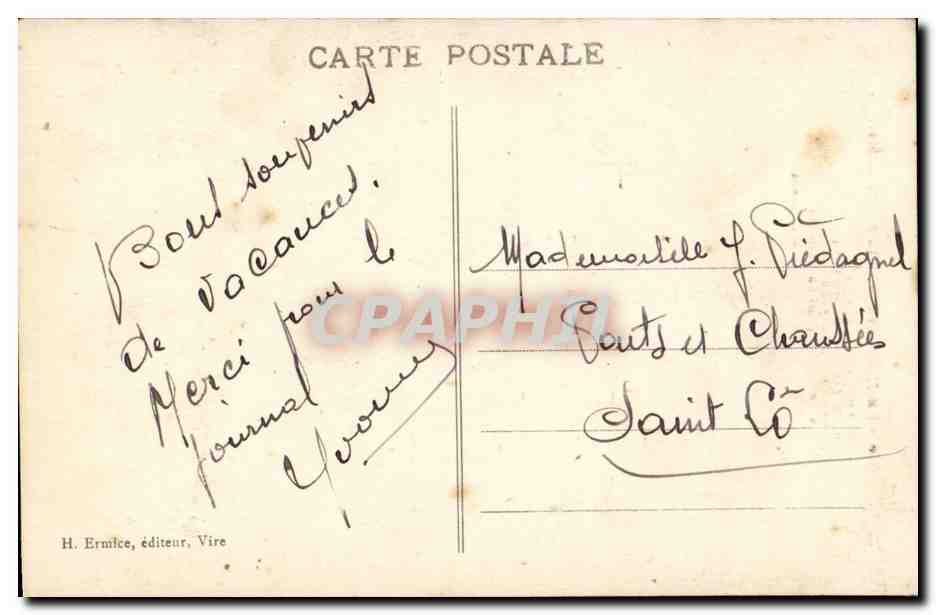 CARTE POSTALE
Bons souvenirs
de vacances.
Merci pour le
journal
Yvonne
Mademoiselle J. Piédagnel
Ponts et Chaussées
Saint Lô
H. Ermice, éditeur, Vire
CPAPHIL